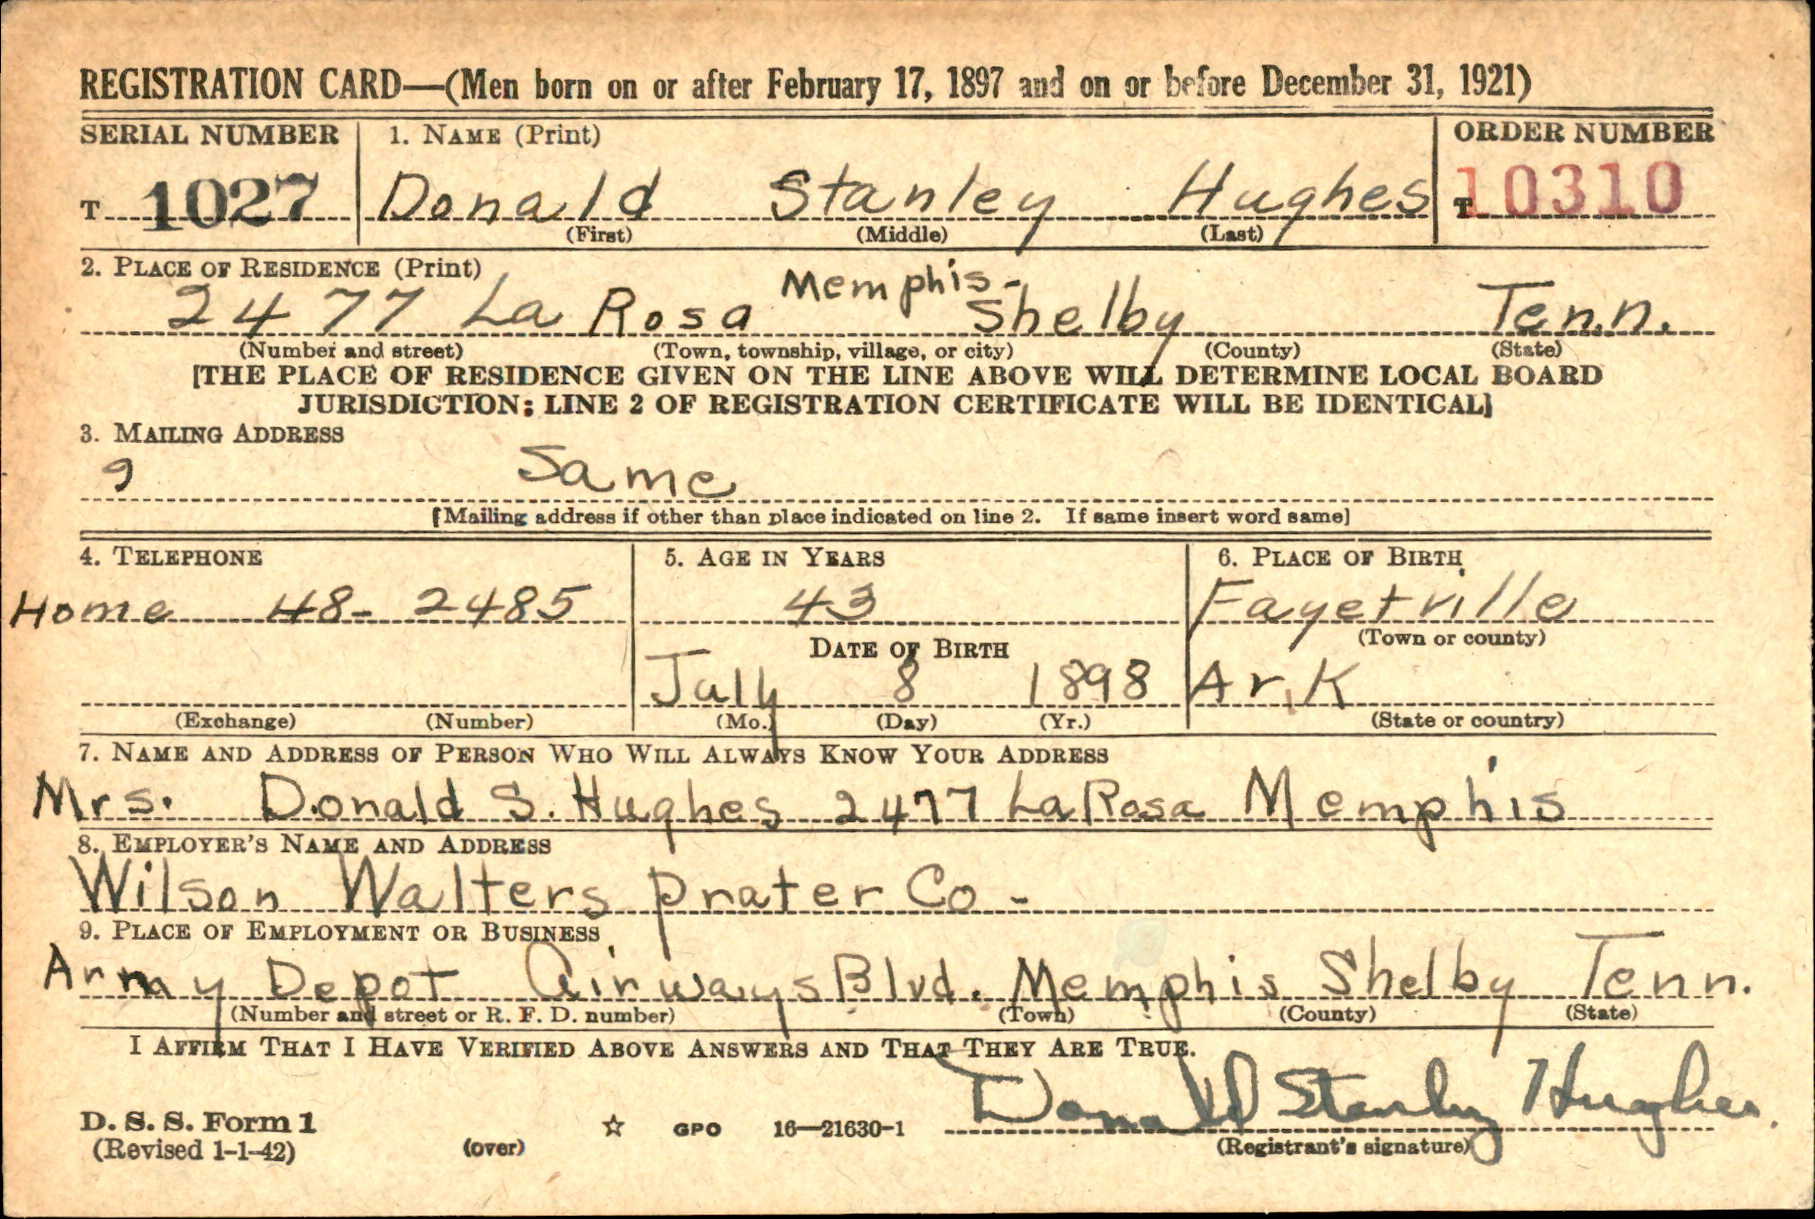 REGISTRATION CARD—(Men born on or after February 17, 1897 and on or before December 31, 1921)
SERIAL NUMBER 1. NAME (Print) ORDER NUMBER
T 1027 Donald Stanley Hughes T 10310
(First) (Middle) (Last)
2. PLACE OF RESIDENCE (Print)
Memphis-
2477 La Rosa Shelby Tenn.
(Number and street) (Town, township, village, or city) (County) (State)
[THE PLACE OF RESIDENCE GIVEN ON THE LINE ABOVE WILL DETERMINE LOCAL BOARD
JURISDICTION; LINE 2 OF REGISTRATION CERTIFICATE WILL BE IDENTICAL]
3. MAILING ADDRESS
9 Same
[Mailing address if other than place indicated on line 2. If same insert word same]
4. TELEPHONE 5. AGE IN YEARS 6. PLACE OF BIRTH
Home 48-2485 43 Fayetville
(Town or county)
DATE OF BIRTH
July 8 1898 Ark
(Exchange) (Number) (Mo.) (Day) (Yr.) (State or country)
7. NAME AND ADDRESS OF PERSON WHO WILL ALWAYS KNOW YOUR ADDRESS
Mrs. Donald S. Hughes 2477 La Rosa Memphis
8. EMPLOYER'S NAME AND ADDRESS
Wilson Walters Prater Co-
9. PLACE OF EMPLOYMENT OR BUSINESS
Army Depot Airways Blvd. Memphis Shelby Tenn.
(Number and street or R. F. D. number) (Town) (County) (State)
I AFFIRM THAT I HAVE VERIFIED ABOVE ANSWERS AND THAT THEY ARE TRUE.
Donald Stanley Hughes.
D. S. S. Form 1
(Revised 1-1-42) (over) ☆ GPO 16—21630-1 (Registrant's signature)